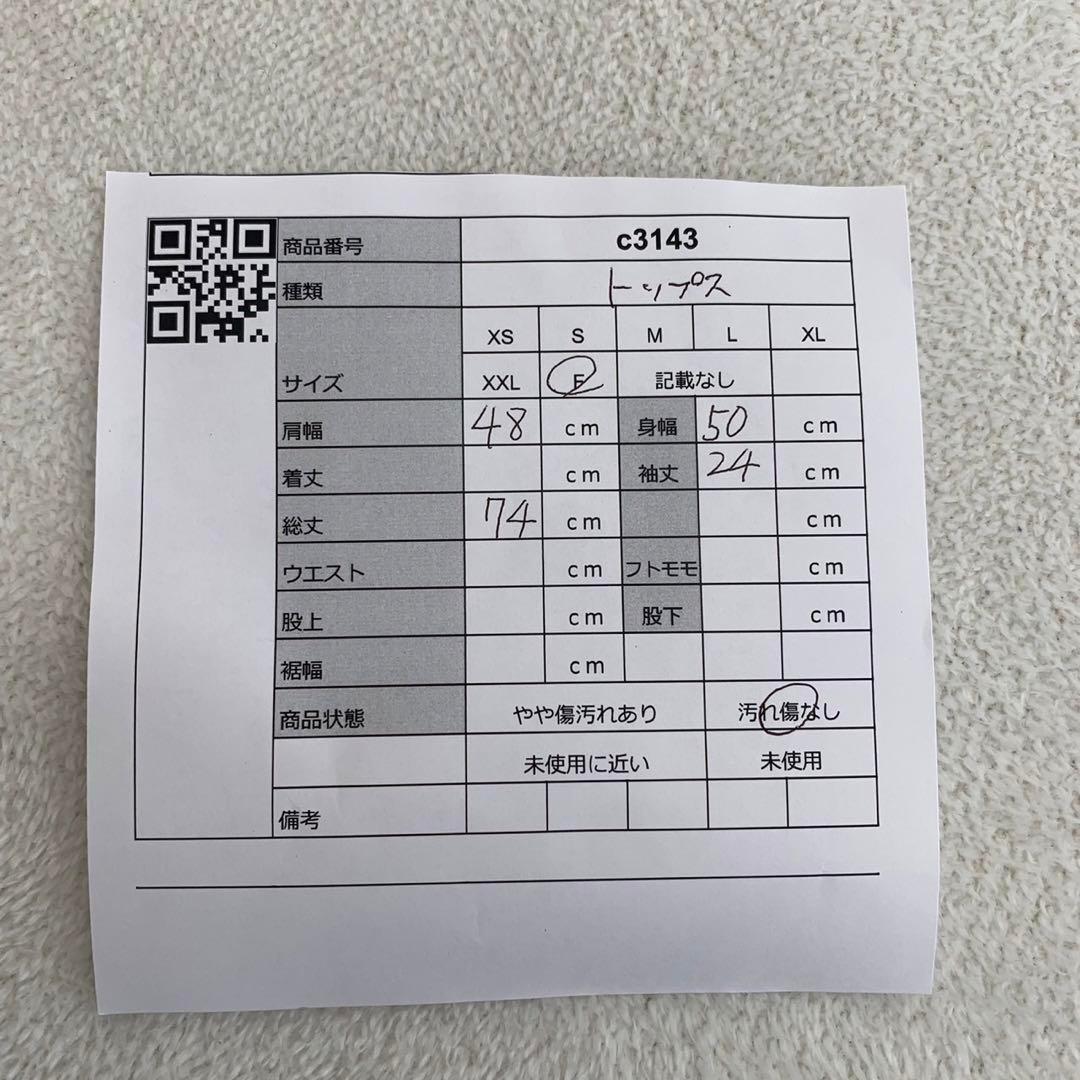 商品番号 c3143
種類 トップス
XS S M L XL
サイズ XXL F 記載なし
肩幅 48 cm 身幅 50 cm
着丈 cm 袖丈 24 cm
総丈 74 cm cm
ウエスト cm フトモモ cm
股上 cm 股下 cm
裾幅 cm
商品状態 やや傷汚れあり 汚れ傷なし
未使用に近い 未使用
備考